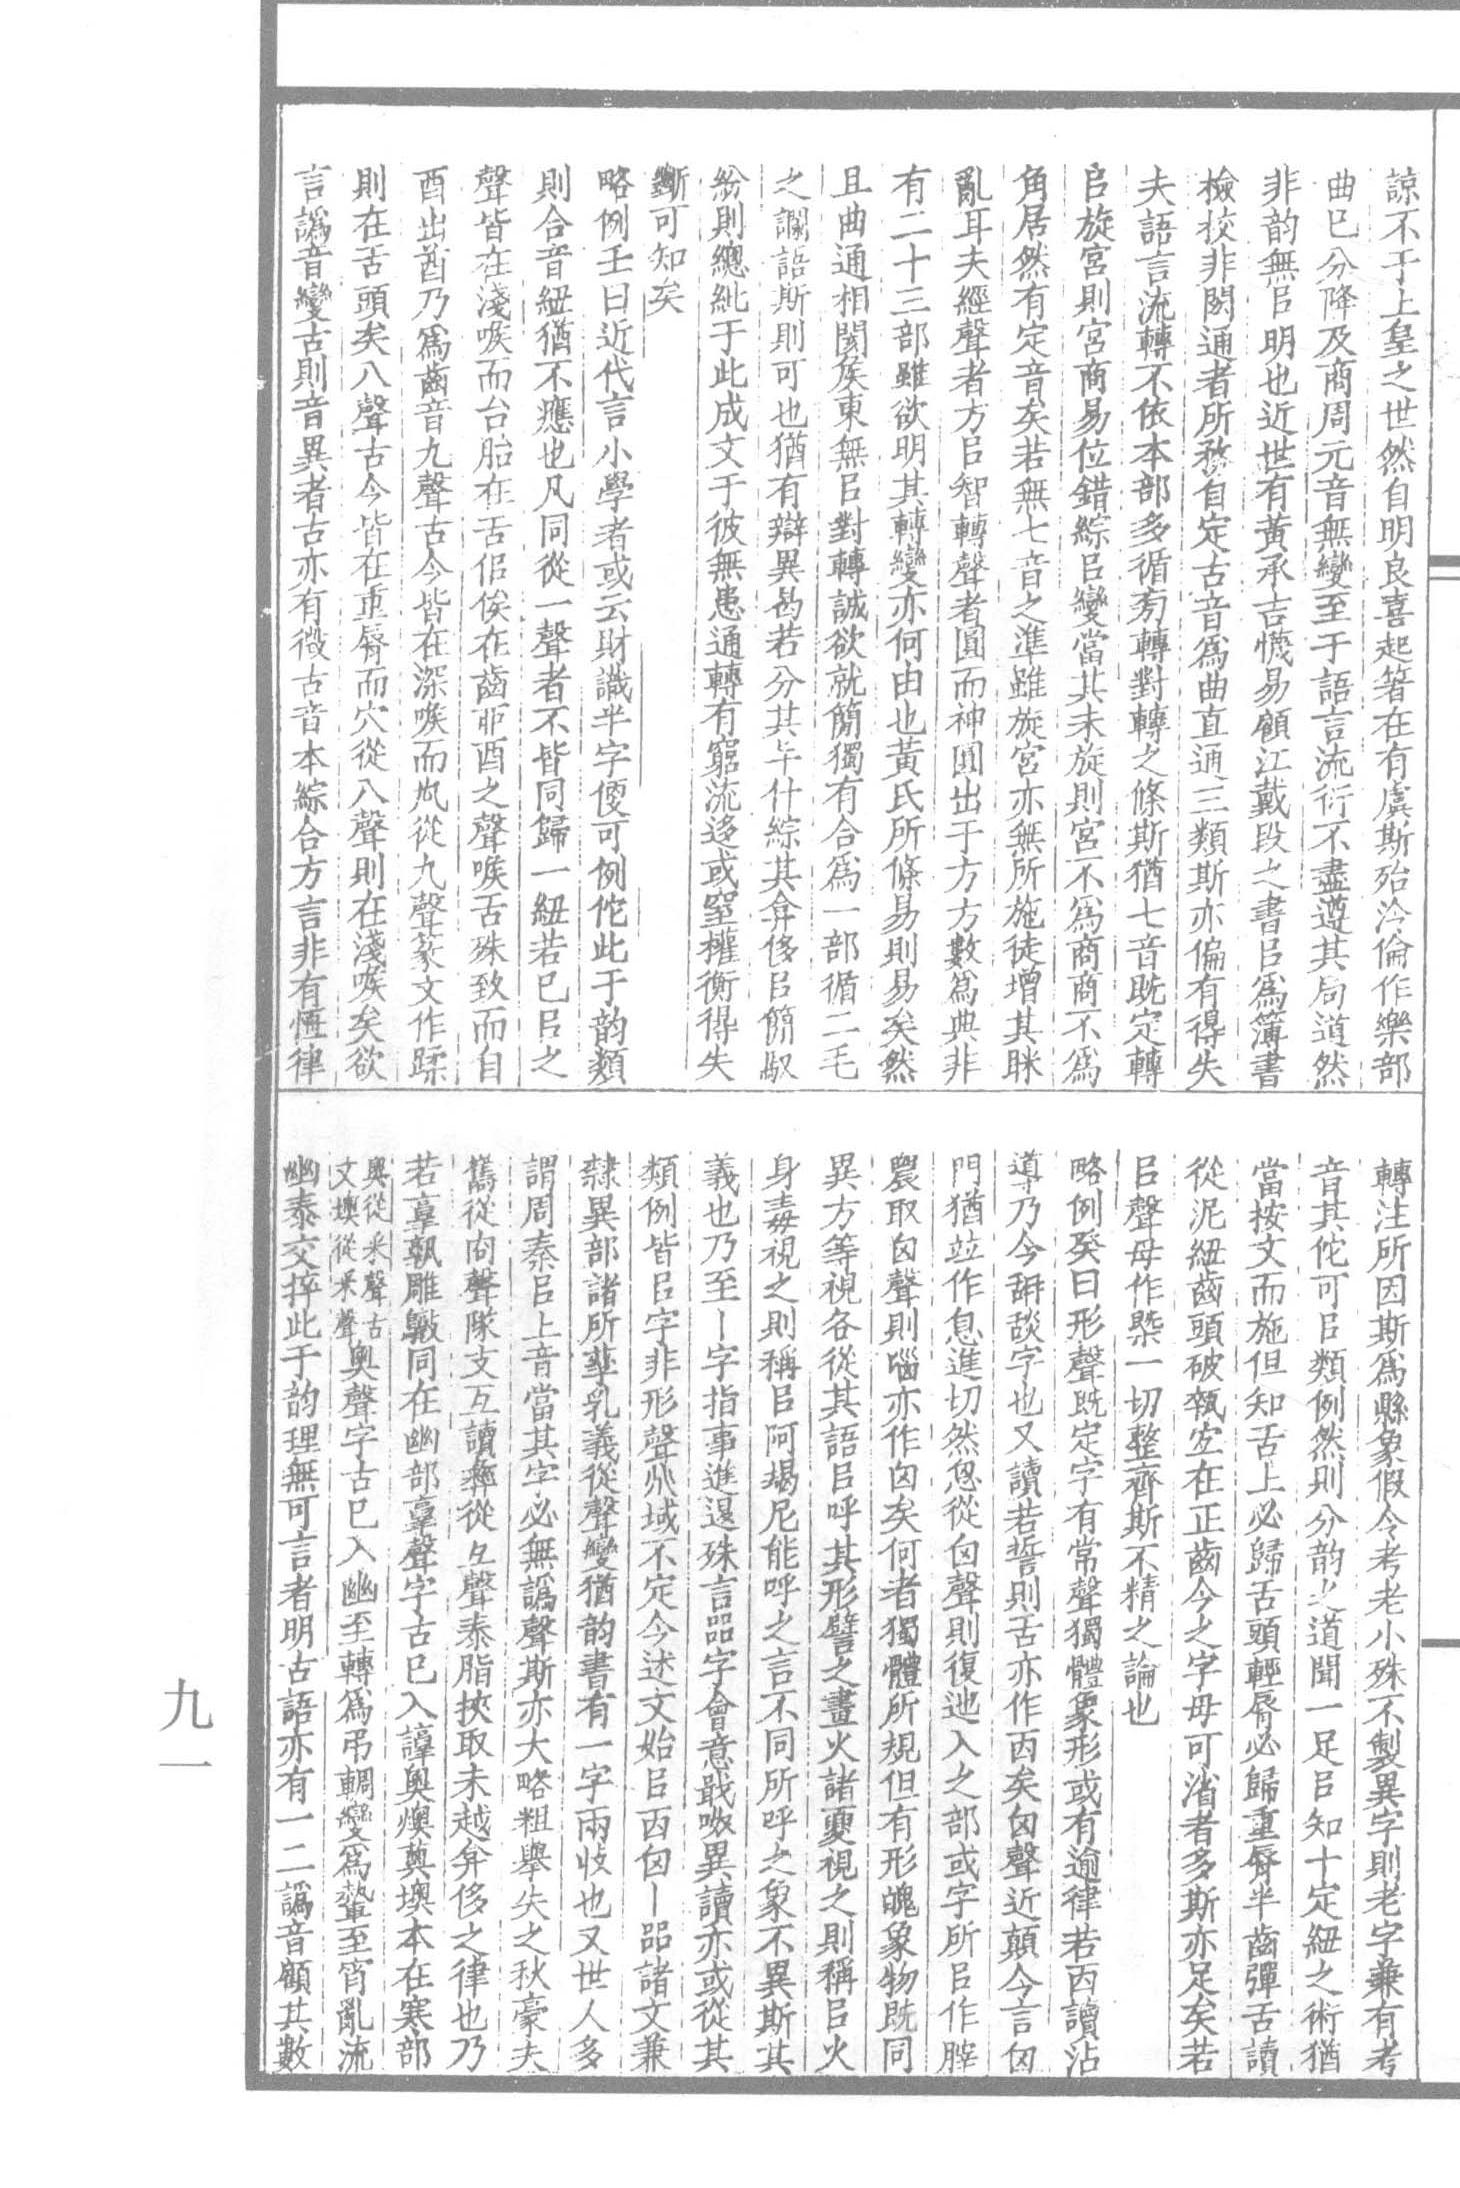 諒不于上皇之世然自明良喜起箸在有虞斯殆泠倫作樂部
曲已分降及商周元音無變至于語言流衍不盡遵其局道然
非韵無㠯明也近世有黃承吉懱易顧江戴段之書㠯爲簿書
檢校非閎通者所務自定古音爲曲直通三類斯亦偏有得失
夫語言流轉不依本部多循旁轉對轉之條斯猶七音旣定轉
㠯旋宮則宮商易位錯綜㠯變當其未旋則宮不爲商商不爲
角居然有定音矣若無七音之準雖旋宮亦無所施徒增其眯
亂耳夫經聲者方㠯智轉聲者圓而神圓出于方方數爲典非
有二十三部雖欲明其轉變亦何由也黃氏所條易則易矣然
且曲通相閡矦東無㠯對轉誠欲就簡獨有合爲一部循二毛
之讕語斯則可也猶有辯異曷若分其㐄什綜其弇侈㠯簡馭
紛則總紕于此成文于彼無患通轉有窮流迻或窒權衡得失
斷可知矣
略例壬曰近代言小學者或云財識半字便可例佗此于韵類
則合音紐猶不應也凡同從一聲者不皆同歸一紐若已㠯之
聲皆在淺喉而台胎在舌佀俟在齒耶酉之聲喉舌殊致而自
酉出酋乃爲齒音九聲古今皆在深喉而尥從九聲篆文作蹂
則在舌頭矣八聲古今皆在重脣而穴從八聲則在淺喉矣欲
言譌音變古則音異者古亦有徵古音本綜合方言非有恆律
轉注所因斯爲縣象假令考老小殊不製異字則老字兼有考
音其佗可㠯類例然則分韵之道聞一足㠯知十定紐之術猶
當按文而施但知舌上必歸舌頭輕脣必歸重脣半齒彈舌讀
從泥紐齒頭破𡘾㝎在正齒今之字母可渻者多斯亦足矣若
㠯聲母作槩一切整齊斯不精之論也
略例癸曰形聲旣定字有常聲獨體象形或有逾律若㐁讀沾
導乃今䑙談字也又讀若誓則舌亦作㐁矣囟聲近顛今言囟
門猶竝作息進切然恖從囟聲則復迆入之部或字所㠯作膟
農取囟聲則𡿺亦作囟矣何者獨體所規但有形魄象物旣同
異方等視各從其語㠯呼其形譬之畫火諸夏視之則稱㠯火
身毒視之則稱㠯阿揭尼能呼之言不同所呼之象不異斯其
義也乃至丨字指事進退殊言㗊字會意戢呶異讀亦或從其
類例皆㠯字非形聲㫄域不定今述文始㠯㐁囟丨㗊諸文兼
隸異部諸所孳乳義從聲變猶韵書有一字兩收也又世人多
謂周秦㠯上音當其字必無譌聲斯亦大略粗舉失之秋豪夫
巂從㕯聲隊支互讀彝從彑聲泰脂挾取未越弇侈之律也乃
若𦎫孰雕敦同在幽部𦎫聲字古已入諄奧燠薁墺本在寒部
奧從釆聲古
文墺從釆聲
奧聲字古已入幽至轉爲弔輖變爲蟄至宵亂流
幽泰交捽此于韵理無可言者明古語亦有一二譌音顧其數
九一